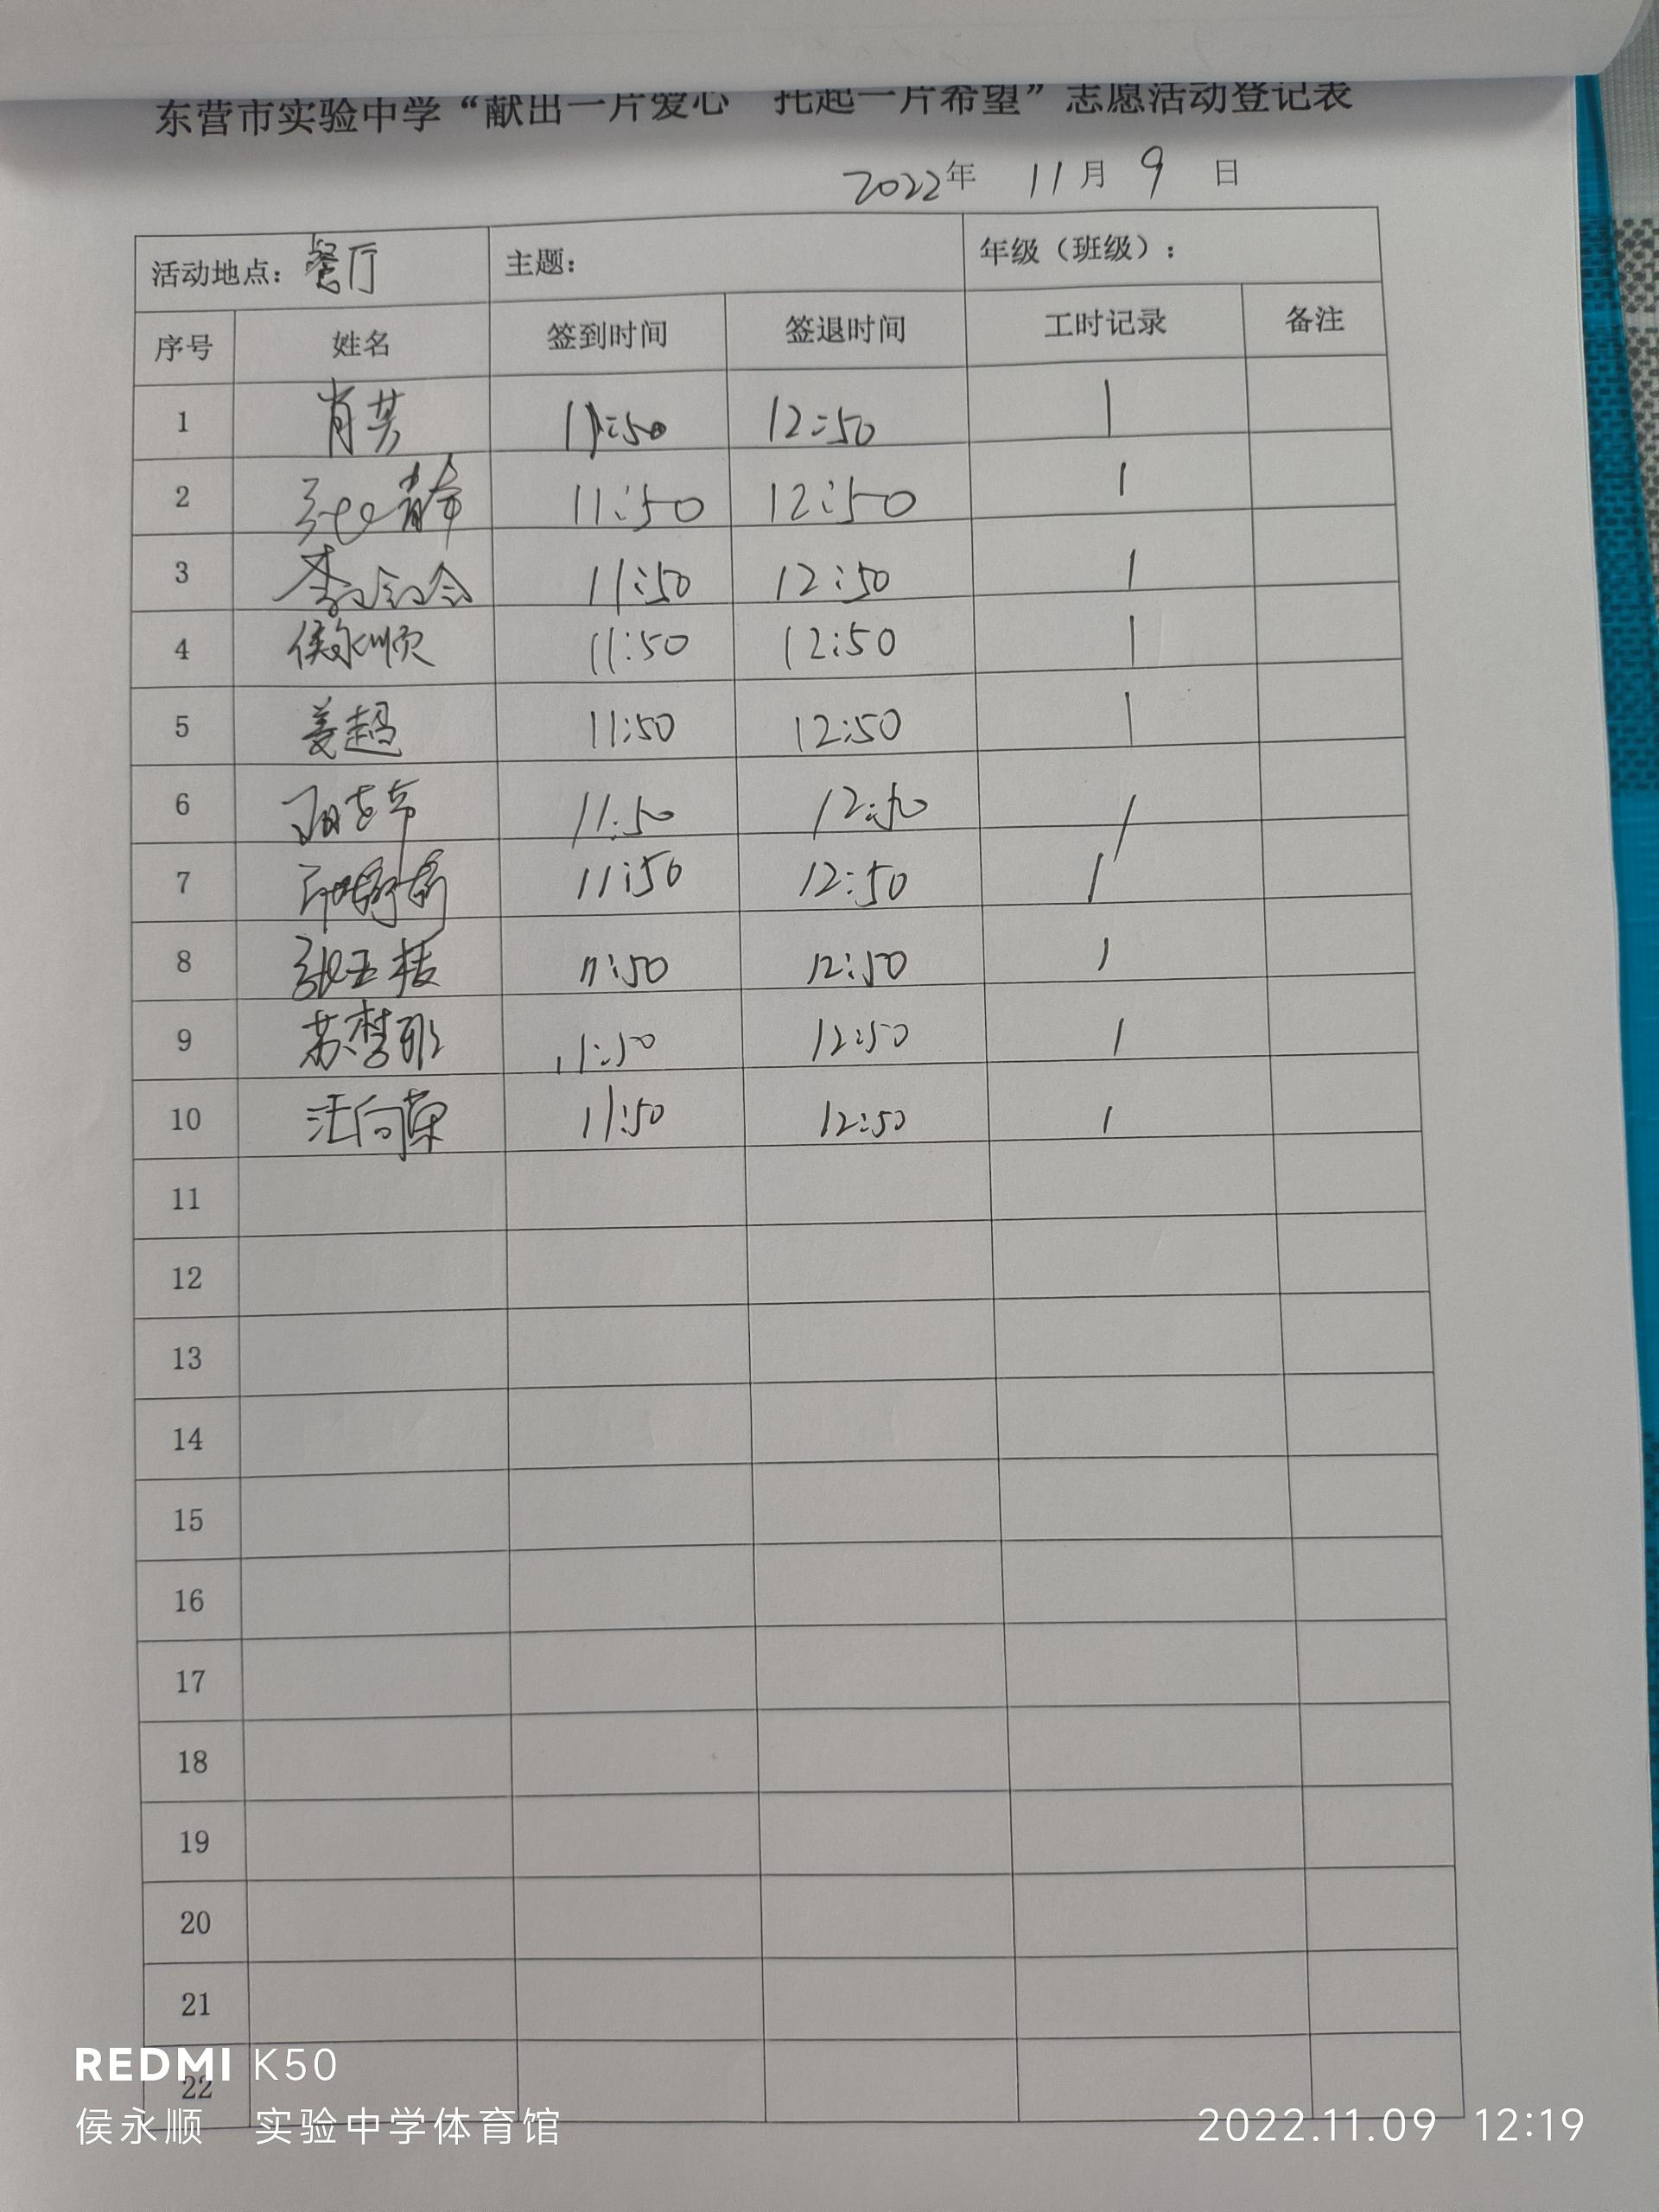 东营市实验中学“献出一片爱心 托起一片希望”志愿活动登记表
2022年 11月 9 日
活动地点：餐厅 主题： 年级（班级）：
序号 姓名 签到时间 签退时间 工时记录 备注
1 肖芸 11:50 12:50 1
2 张静 11:50 12:50 1
3 李 11:50 12:50 1
4 侯永顺 11:50 12:50 1
5 姜超 11:50 12:50 1
6 11:50 12:50 1
7 11:50 12:50 1
8 张玉枝 11:50 12:50 1
9 苏梦 11:50 12:50 1
10 汪向 11:50 12:50 1
11
12
13
14
15
16
17
18
19
20
21
22
REDMI K50
侯永顺 实验中学体育馆 2022.11.09 12:19